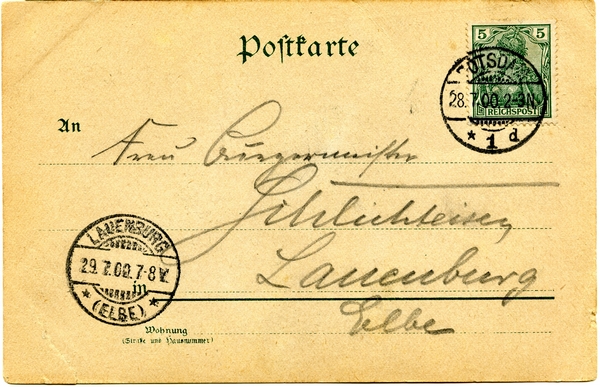 Postkarte
5 5
REICHSPOST
POTSDAM
28.7.00.2-3N
* 1 d
An
Frau Bürgermeister
Schlichteisen
Lauenburg
Elbe
LAUENBURG
29.7.00.7-8V.
* (ELBE) *
in
Wohnung
(Straße und Hausnummer)